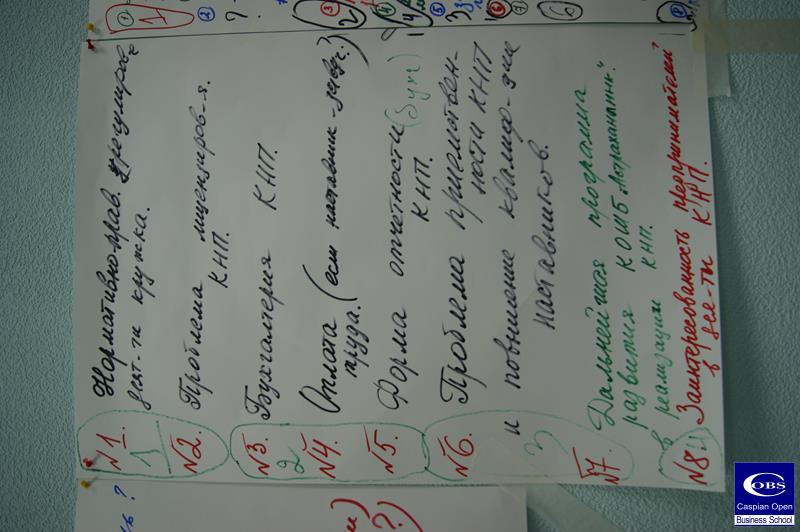 №1. Нормативно-прав. регулиров-е
деят-ти кружка.
№2. Проблема лицензиров-я.
КНП.
№3. Бухгалтерия КНП.
№4. Оплата (если наставник
труда.
№5. Форма отчетности
КНП.
№6. Проблема приемствен-
ности КНП
и повышение квалиф-ции
наставников.
№7 Дальнейшая программа
развития КОШБ „Астраханлинк".
в реализации КНП.
№8 Заинтересованность предпринимателей
в дея-ти КНП.
1
2
3
OBS
Caspian Open
Business School